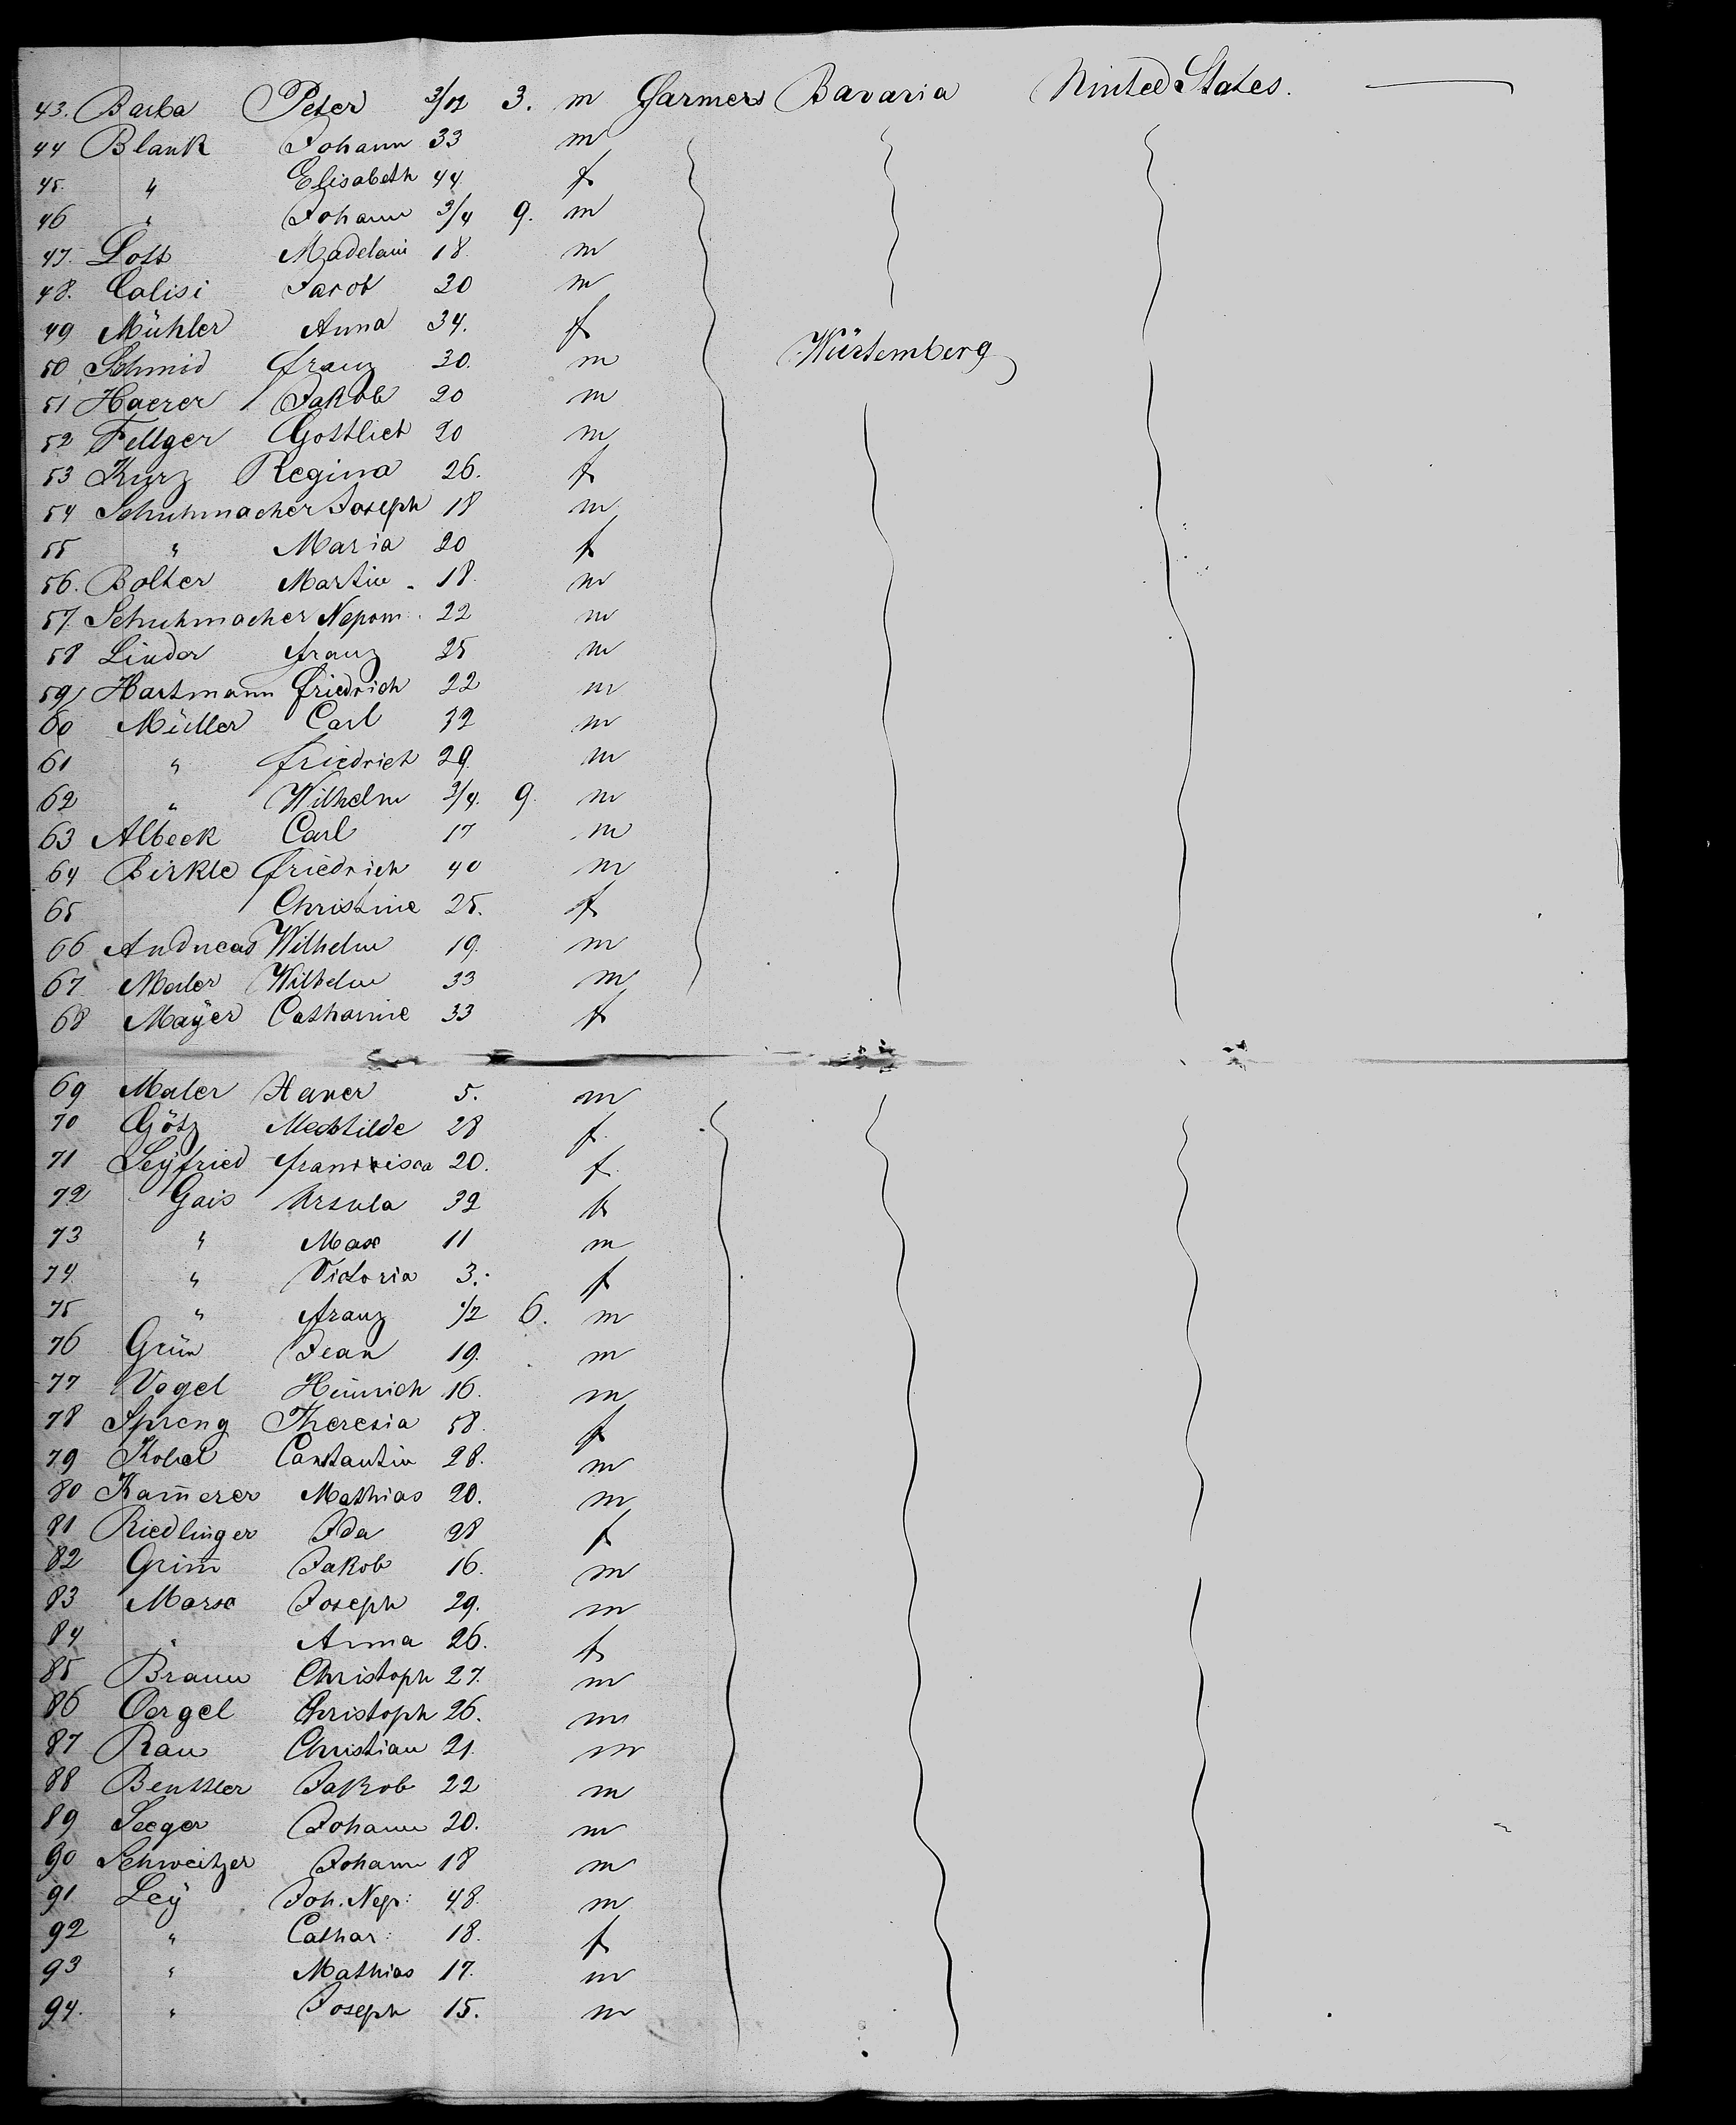 43. Barba Peter 3/12 3. m Farmers Bavaria United States.
44 Blank Johann 33 m
45. " Elisabeth 44 f
46 " Johann 3/4 9. m
47. Lott Madelain 18. m
48. Calisi Jacob 20 m
49 Mühler Anna 34. f
50 Schmid Franz 30. m Würtemberg
51 Haerer Jakob 20 m
52 Fellger Gottlieb 20 m
53 Kurz Regina 26. f
54 Schuhmacher Joseph 18 m
55 " Maria 20 f
56. Bolter Martin 18. m
57. Schuhmacher Nepom. 22 m
58 Linder Franz 25 m
59 Hartmann Friedrich 22 m
60 Müller Carl 32 m
61 " Friedrich 29. m
62 " Wilhelm 3/4. 9. m
63 Albeck Carl 17 m
64 Birkle Friedrich 40 m
65 Christine 25. f
66 Andreas Wilhelm 19. m
67 Maler Wilhelm 33 m
68 Mayer Catharine 33 f
69 Maler Xaver 5. m
70 Götz Mechtilde 28 f.
71 Seyfried Francisca 20. f.
72 Gais Ursula 32 f
73 " Max 11 m
74 " Victoria 3. f
75 " Franz 1/2 6. m
76 Grün Jean 19. m
77 Vogel Heinrich 16. m
78 Spreng Theresia 58. f
79 Kobel Constantin 28. m
80 Kam̄erer Mathias 20. m
81 Riedlinger Ida 28 f
82 Grim̄ Jakob 16. m
83 Marx Joseph 29. m
84 " Anna 26. f
85 Braun Christoph 27. m
86 Oergel Christoph 26. m
87 Rau Christian 21. m
88 Benttler Jakob 22 m
89 Seeger Johann 20. m
90 Schweitzer Johann 18 m
91 Ley Joh. Nep: 48. m
92 " Cathar: 18. f
93 " Mathias 17. m
94. " Joseph 15. m